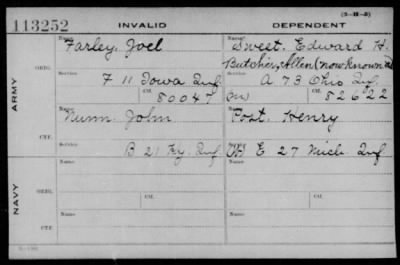 (3-H-3)
113252 INVALID DEPENDENT
Name Farley, Joel Name Sweet, Edward H.
Butcher, Allen (now known as)
ARMY
ORIG.
Service F 11 Iowa Inf. Service A 73 Ohio Inf.
Ctf. 80047 (M) Ctf. 82622
Name Nunn, John Name Post, Henry
CTF.
Service B 21 Ky. Inf E 27 Mich. Inf
NAVY
Name Name
ORIG.
Service Ctf. Service Ctf.
Name Name
CTF.
Service Service